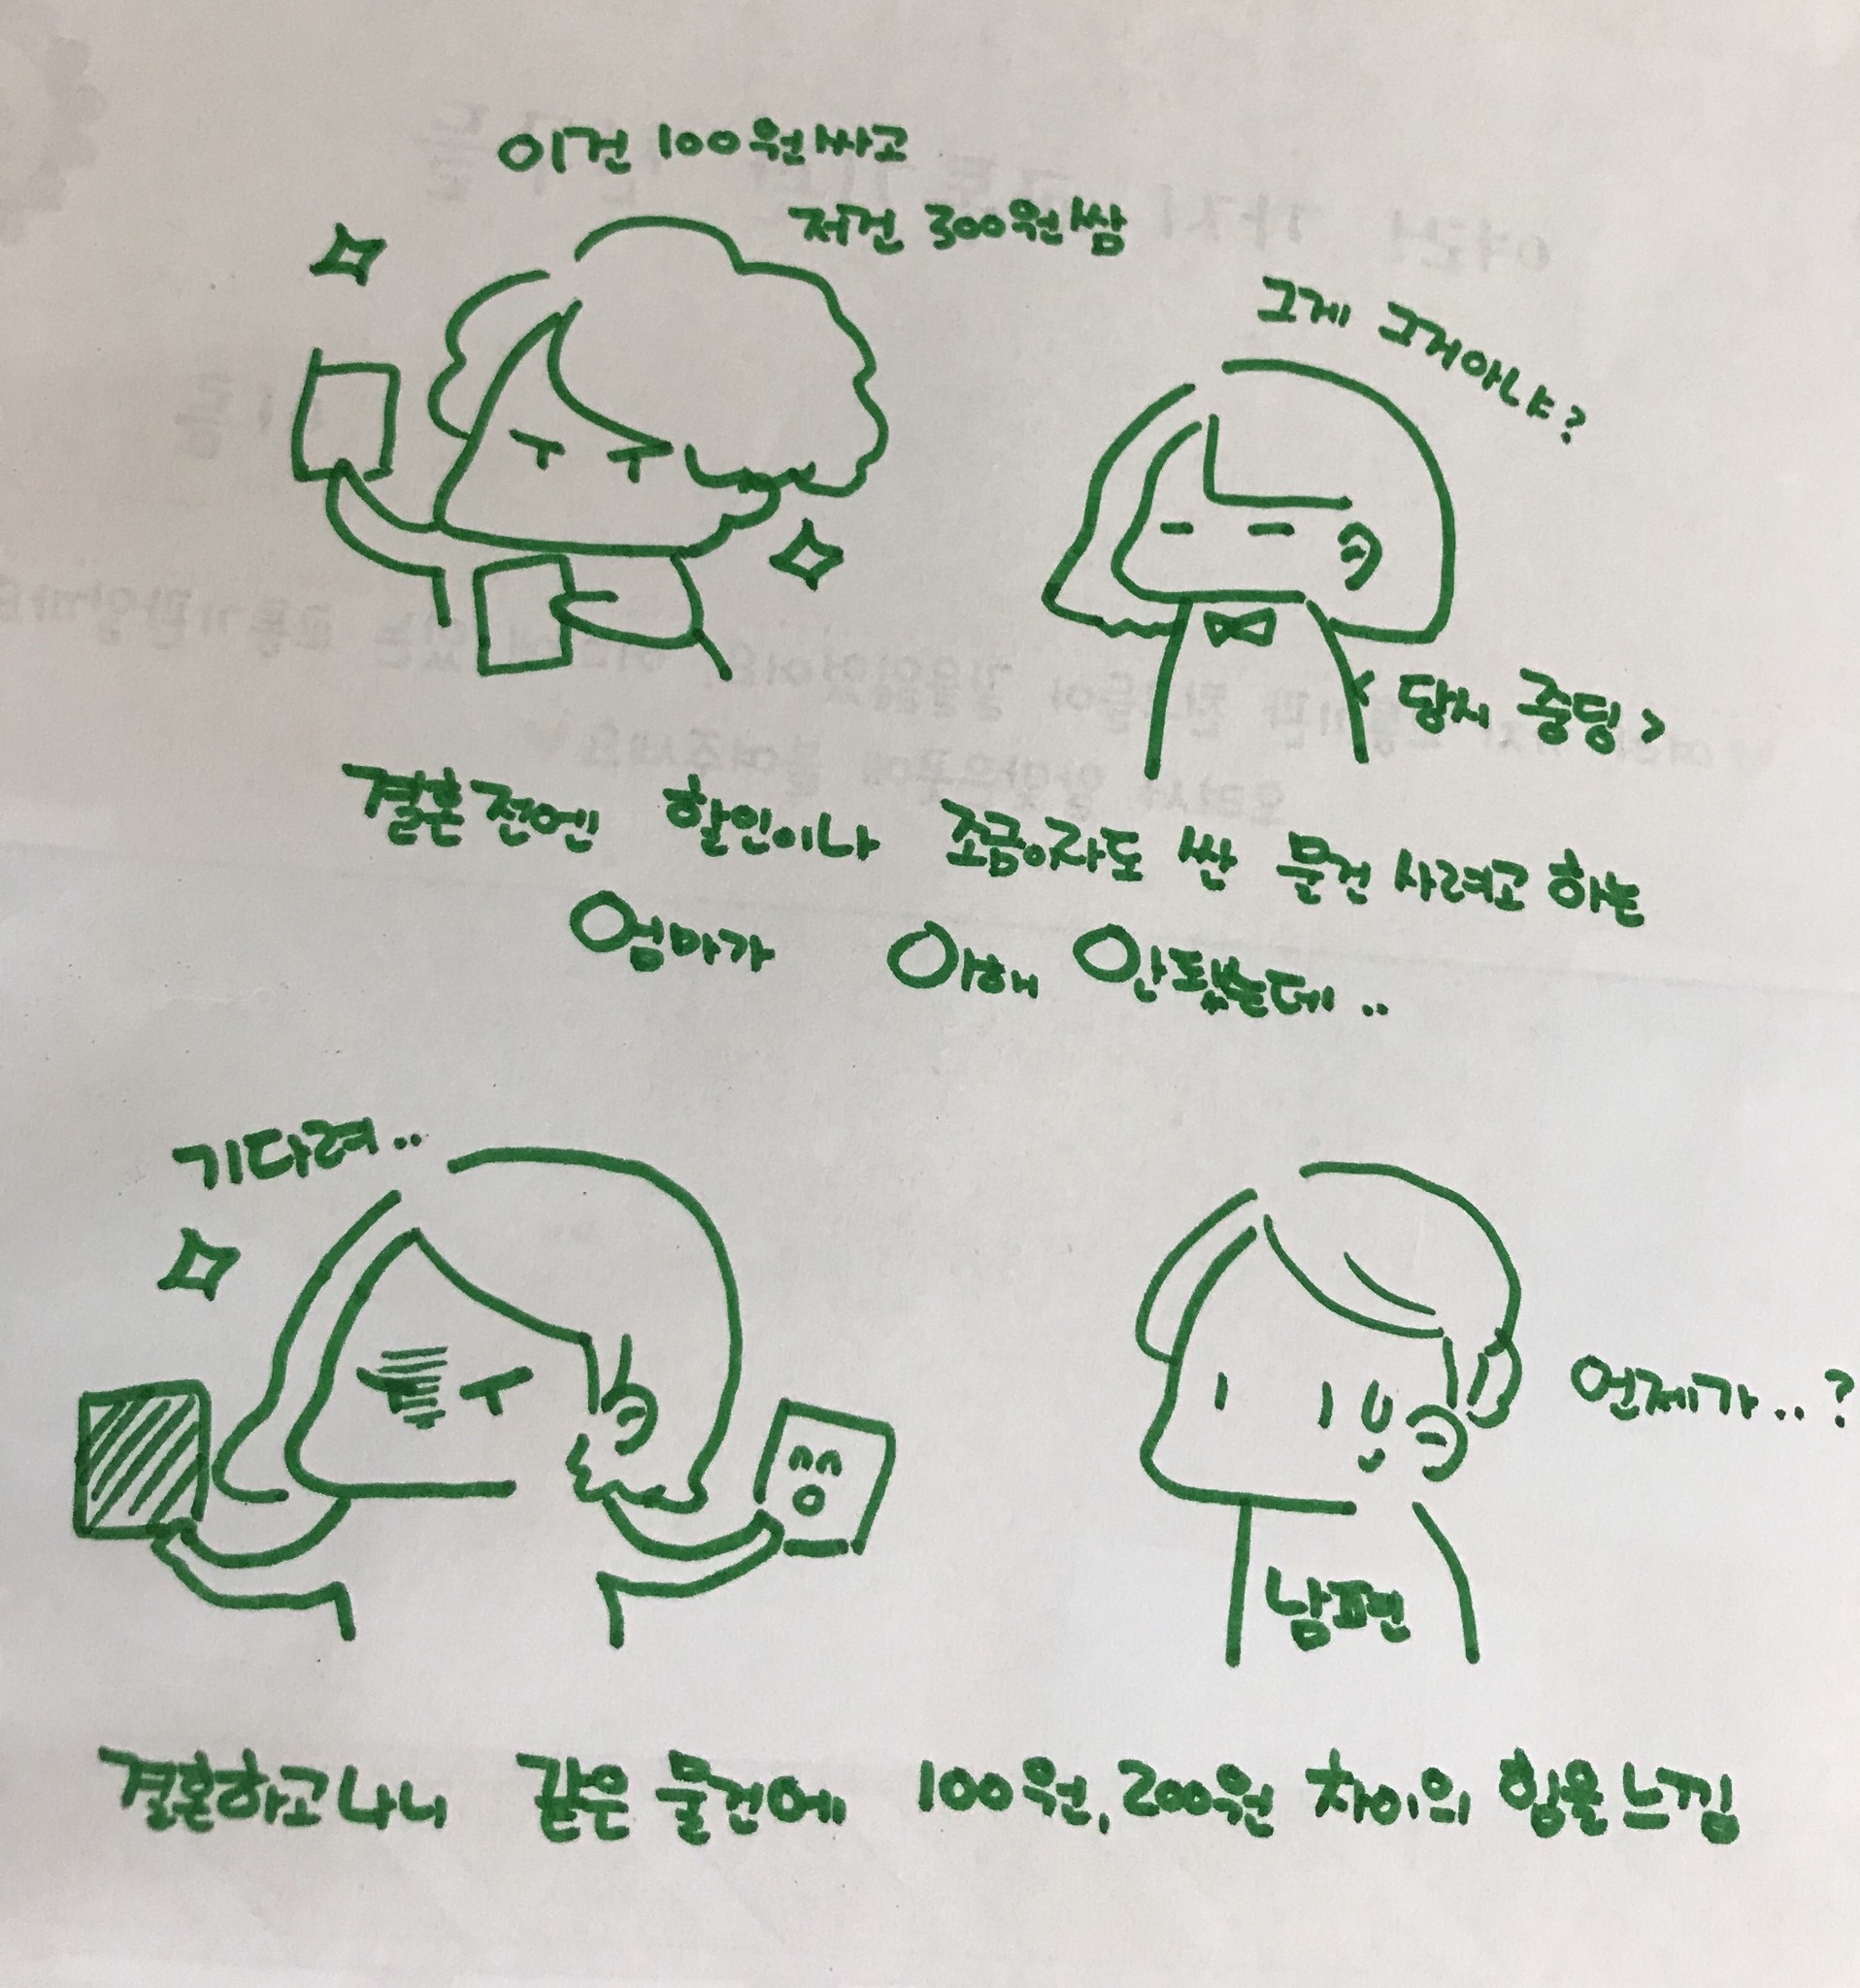 이건 100원 싸고
저건 300원 쌈
그게 그거아냐?
<당시 중딩>
결혼 전엔 할인이나 조금이라도 싼 물건 사려고 하는
엄마가 이해 안됐는데..
기다려..
언제가..?
남편
결혼하고 나니 같은 물건에 100원, 200원 차이의 힘을 느낌